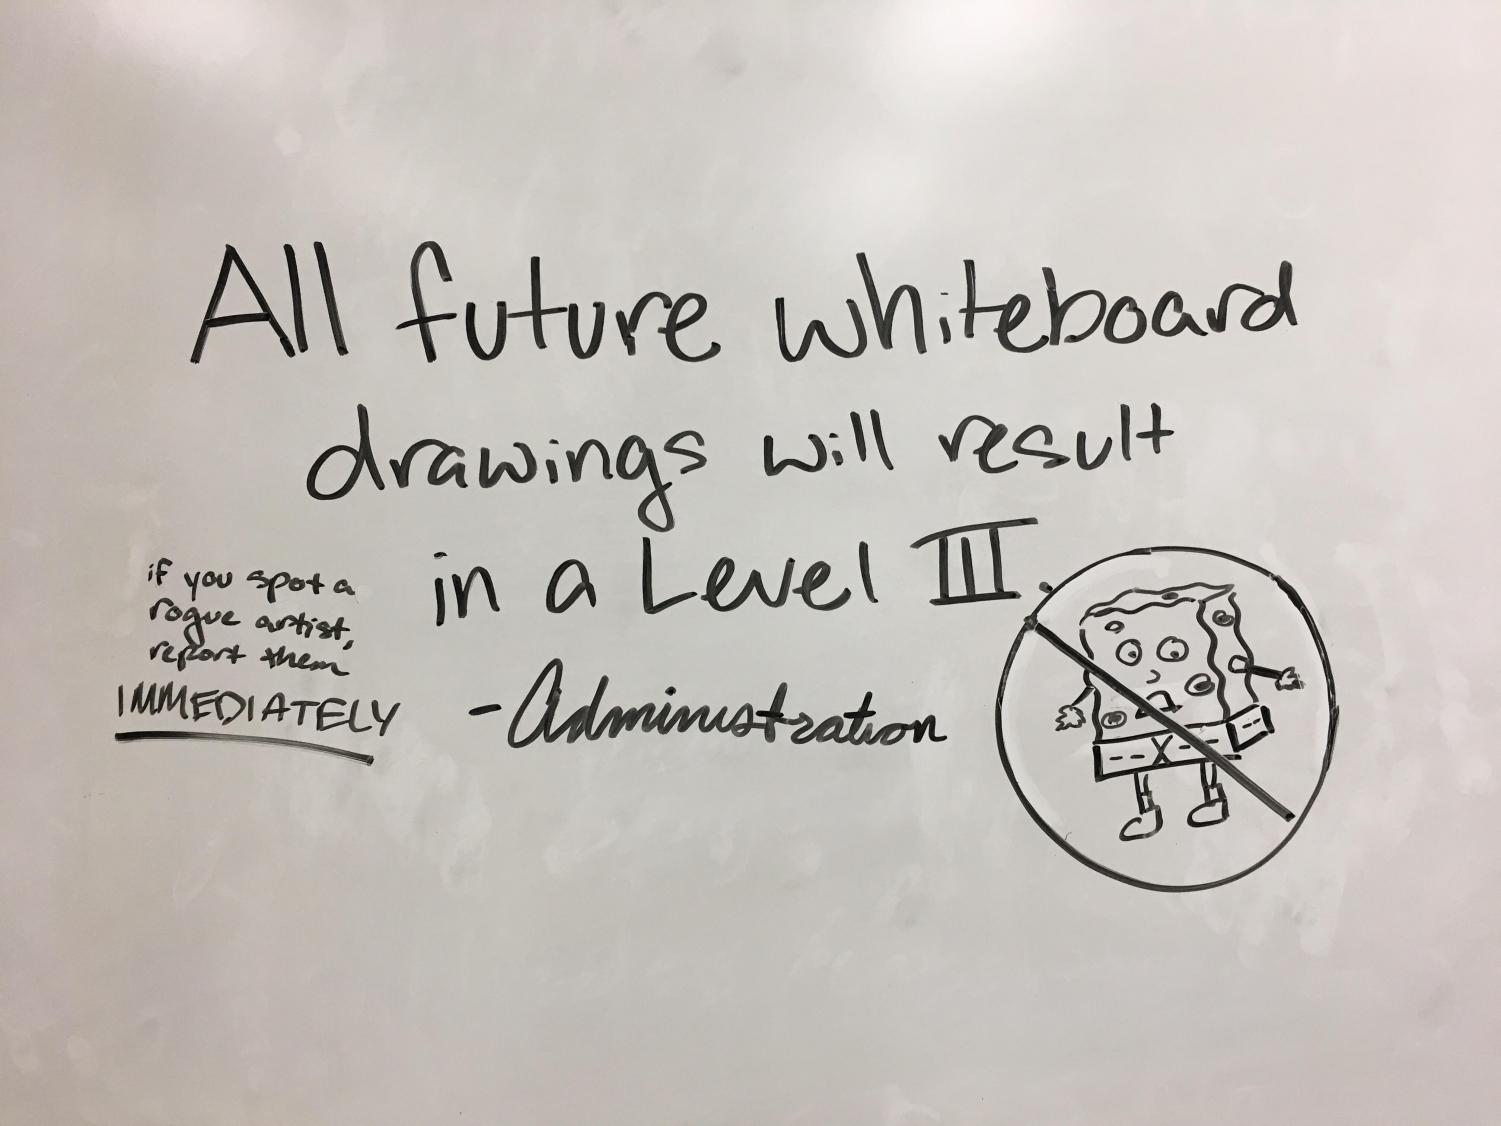 All future whiteboard
drawings will result
in a Level III.
- Administration
if you spot a
rogue artist,
report them
IMMEDIATELY